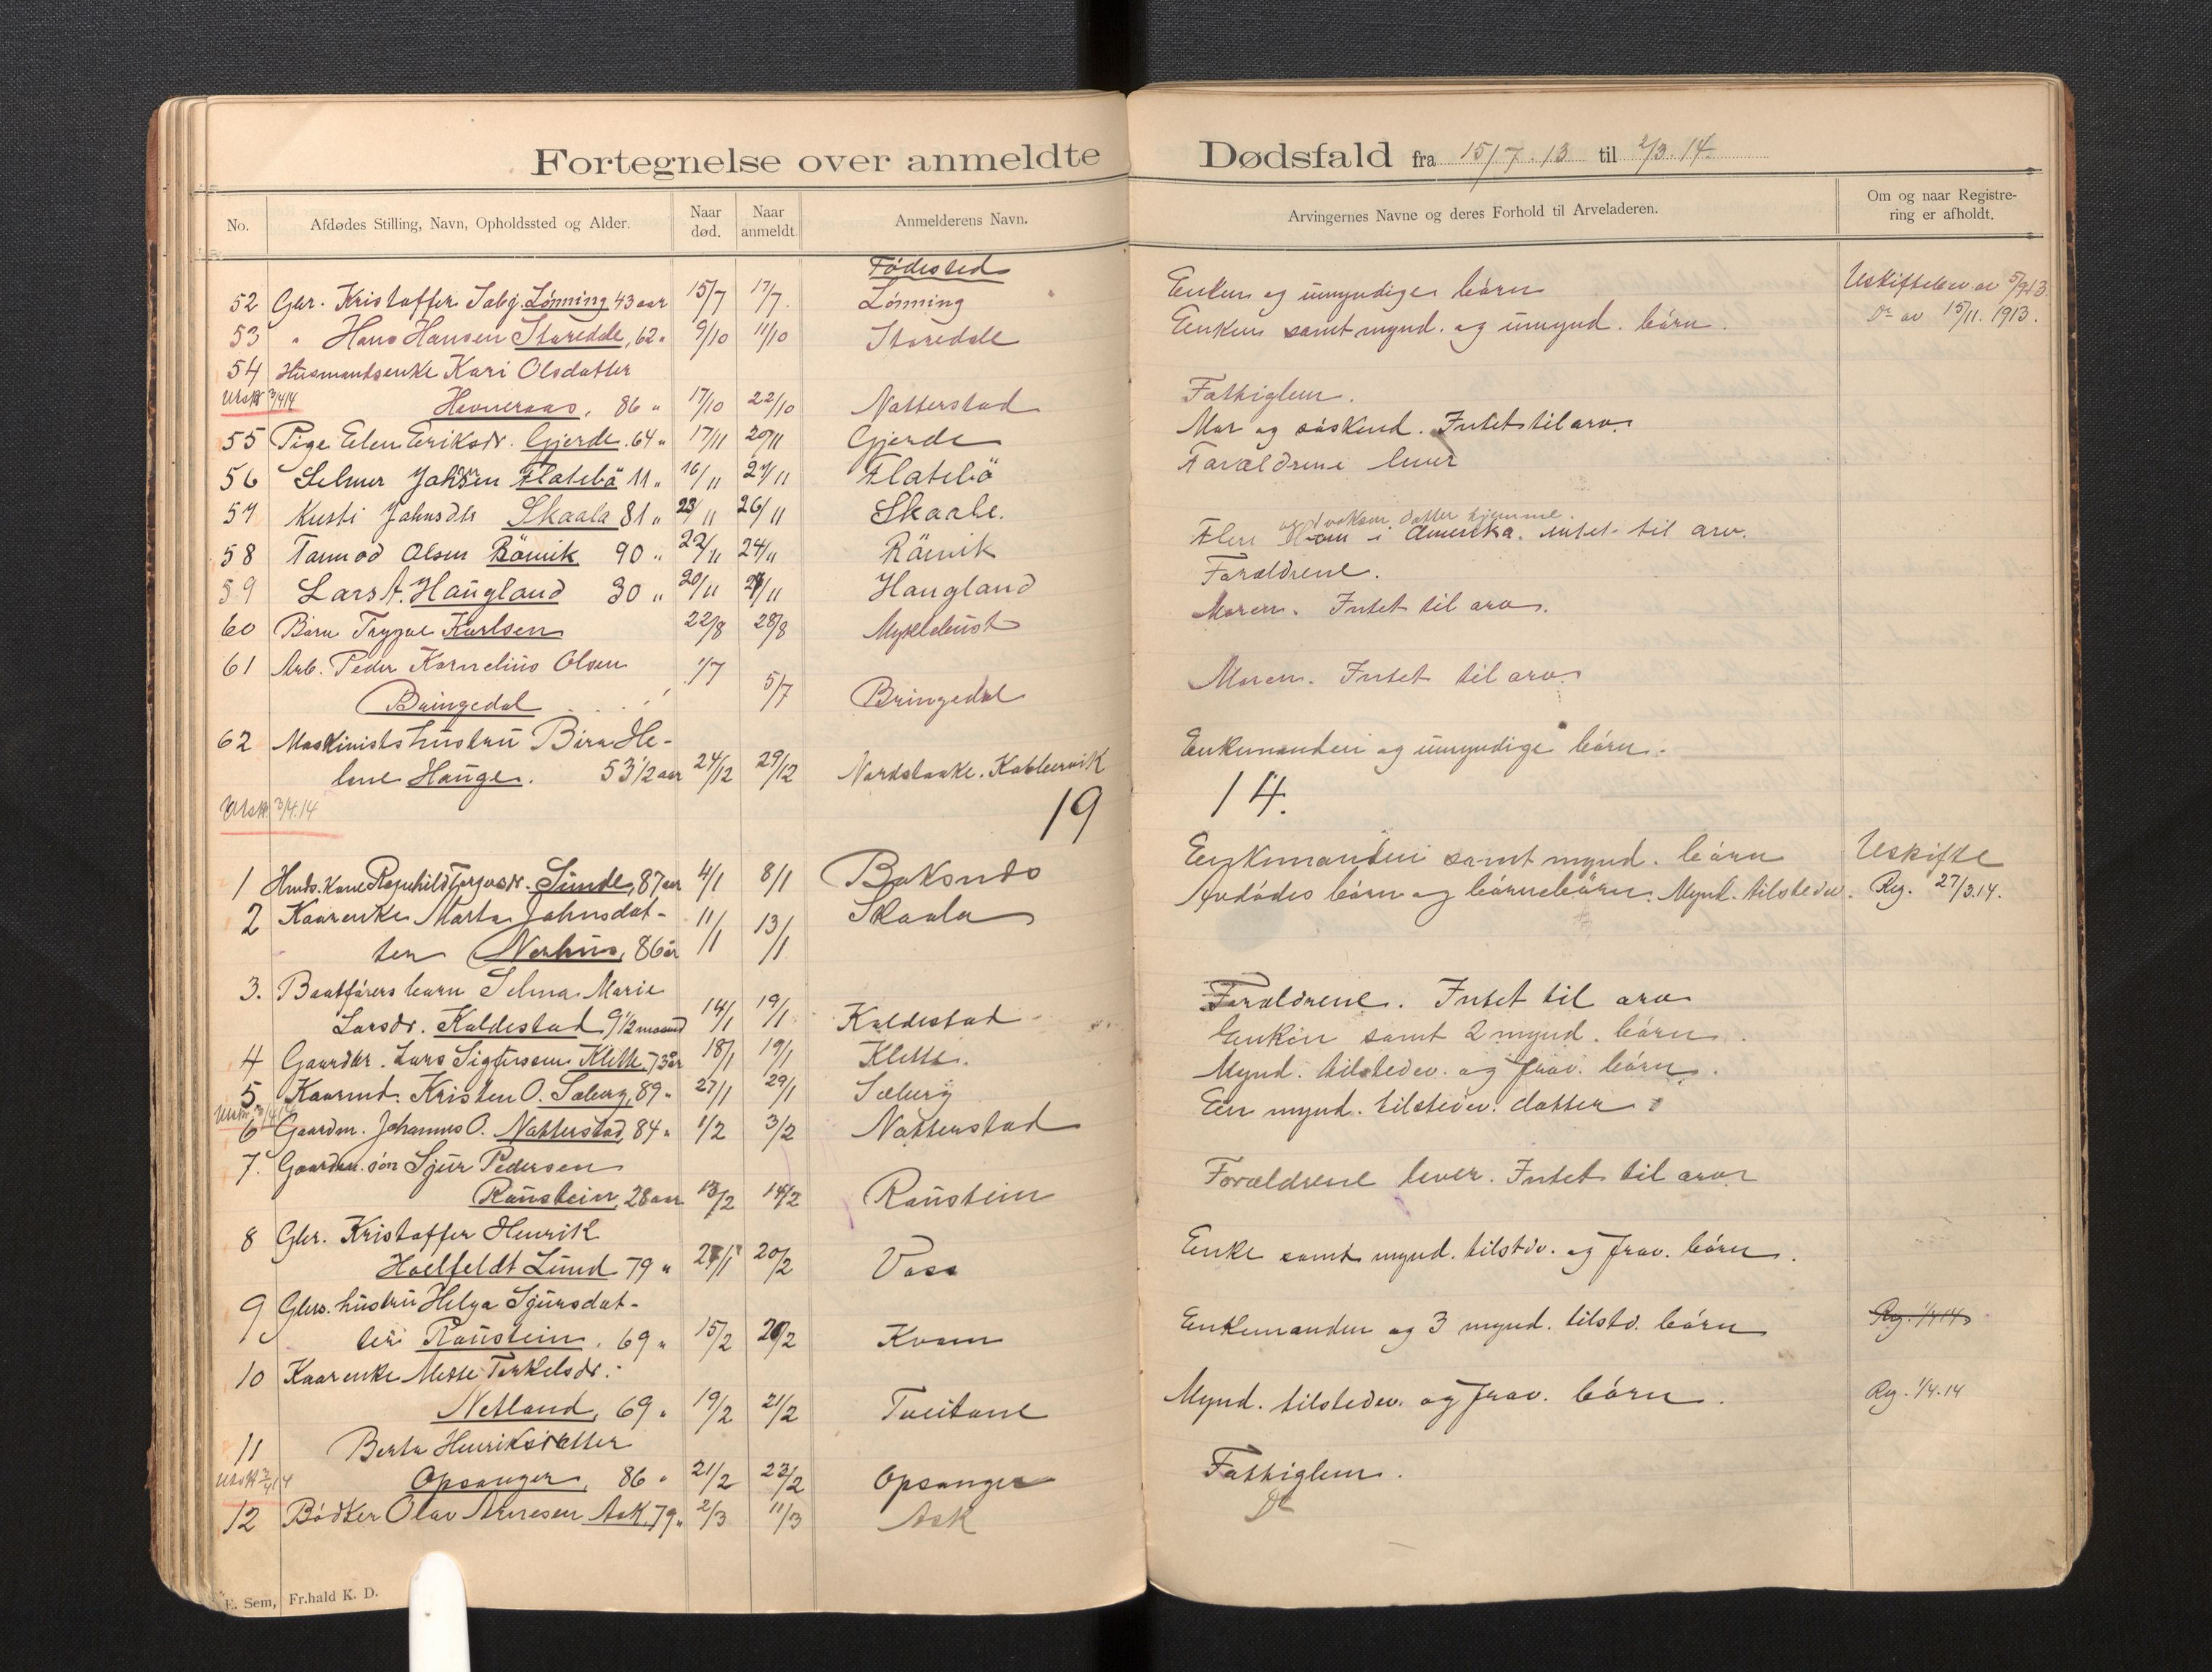 Fortegnelse over anmeldte Dødsfald fra 15/7.13 til 2/3.14.
No. Afdødes Stilling, Navn, Opholdssted og Alder. Naar død. Naar anmeldt Anmelderens Navn. Arvingernes Navne og deres Forhold til Arveladeren. Om og naar Registrering er afholdt.
Födested
52 Gbr. Kristoffer Tobj. Lönning 43 aar 15/7 17/7. Lönning Enken og umyndige börn Uskiftebev. av 5/9 13.
53 " Hans Hansen Staredale, 62 " 9/10 11/10 Staredale Enken samt mynd. og umynd. börn. Do av 15/11. 1913.
54 Husmandsenke Kari Olsdatter
Utskr 3/4 14 Havneraas, 86 " 17/10 22/10 Natterstad Fattiglem.
55 Pige Elen Eriksdr. Gjerde 64 " 17/11 20/11 Gjerde Mor og söskend. Intet til arv.
56 Selmer Johsen Flatebö 11 " 16/11 24/11 Flatebö Forældrene lever
57 Kusti Johnsdtr Skaala 81 " 23/11 26/11 Skaale.
58 Tormod Olsen Röinik 90 " 22/11 24/11 Röinik Flere i Amerika. intet til arv.
59 Lars A. Haugland 30 " 20/11 24/11 Haugland Forældrene.
60 Barn Trygve Karlsen 22/8 28/8 Myklebust Moren. Intet til arv.
61 Arb. Peder Kornelius Olsen 1/7
Bringedal 5/7 Bringedal Moren. Intet til arv.
62 Maskinistshustru He-
lene Hauge. 53 1/2 aar 24/12 29/12 Enkemanden og umyndige börn.
Utskr. 3/4.14
19 14.
1 Hmds. Kone Ragnhild Torjusdr. Sunde, 87 aar 4/1 8/1 Enkemanden samt mynd. börn Uskifte
2 Kaarenke Marta Johnsdat- 11/1 13/1 Skaala Avdödes börn og börnebörn. Mynd. tilstedev. Reg. 27/3.14.
ter Nerhus, 86 år
3. Baatförers barn Selma Marie
Larsdr. Kaldestad 9 1/2 maaned 14/1 19/1 Kaldestad Forældrene. Intet til arv
4 Gaardbr. Lars Sigfersen Klette 73 år 18/1 19/1 Klette. Enken samt 2 mynd. börn.
5 Kaarmd. Kristen O. Sæberg, 89 " 27/1 29/1 Sæberg Mynd. tilstedev. og frav. börn.
6 Gaardm. Johannes O. Natterstad, 84 " 1/2 3/2 Natterstad En mynd. tilstedev. datter
7. Gaardm. sön Sjur Pedersen
Raustein, 28 aar 13/2 14/2 Raustein Forældrene lever. Intet til arv
8 Gbr. Kristoffer Henrik
Hoelfeldt Lund 79 " 27/1 20/2 Voss Enke samt mynd. tilstdv. og frav. börn.
9 Gbrs. hustru Helga Sjursdat-
ter Raustein, 69 " 15/2 20/2 Kvam Enkemanden og 3 mynd. tilstd. börn Reg. 1/4 14
10 Kaarenke Mette Torkelsdr.
Netland, 69 " 19/2 21/2 Tveitane Mynd. tilstedev. og frav. börn. Reg. 1/4.14
11 Berta Henriksdatter
Utskr 3/4 14 Opsanger, 86 " 21/2 23/2 Opsanger Fattiglem.
12 Bödker Olav Arnesen Ask, 79 " 2/3 11/3 Ask Do
E. Sem, Fr.hald K. D.